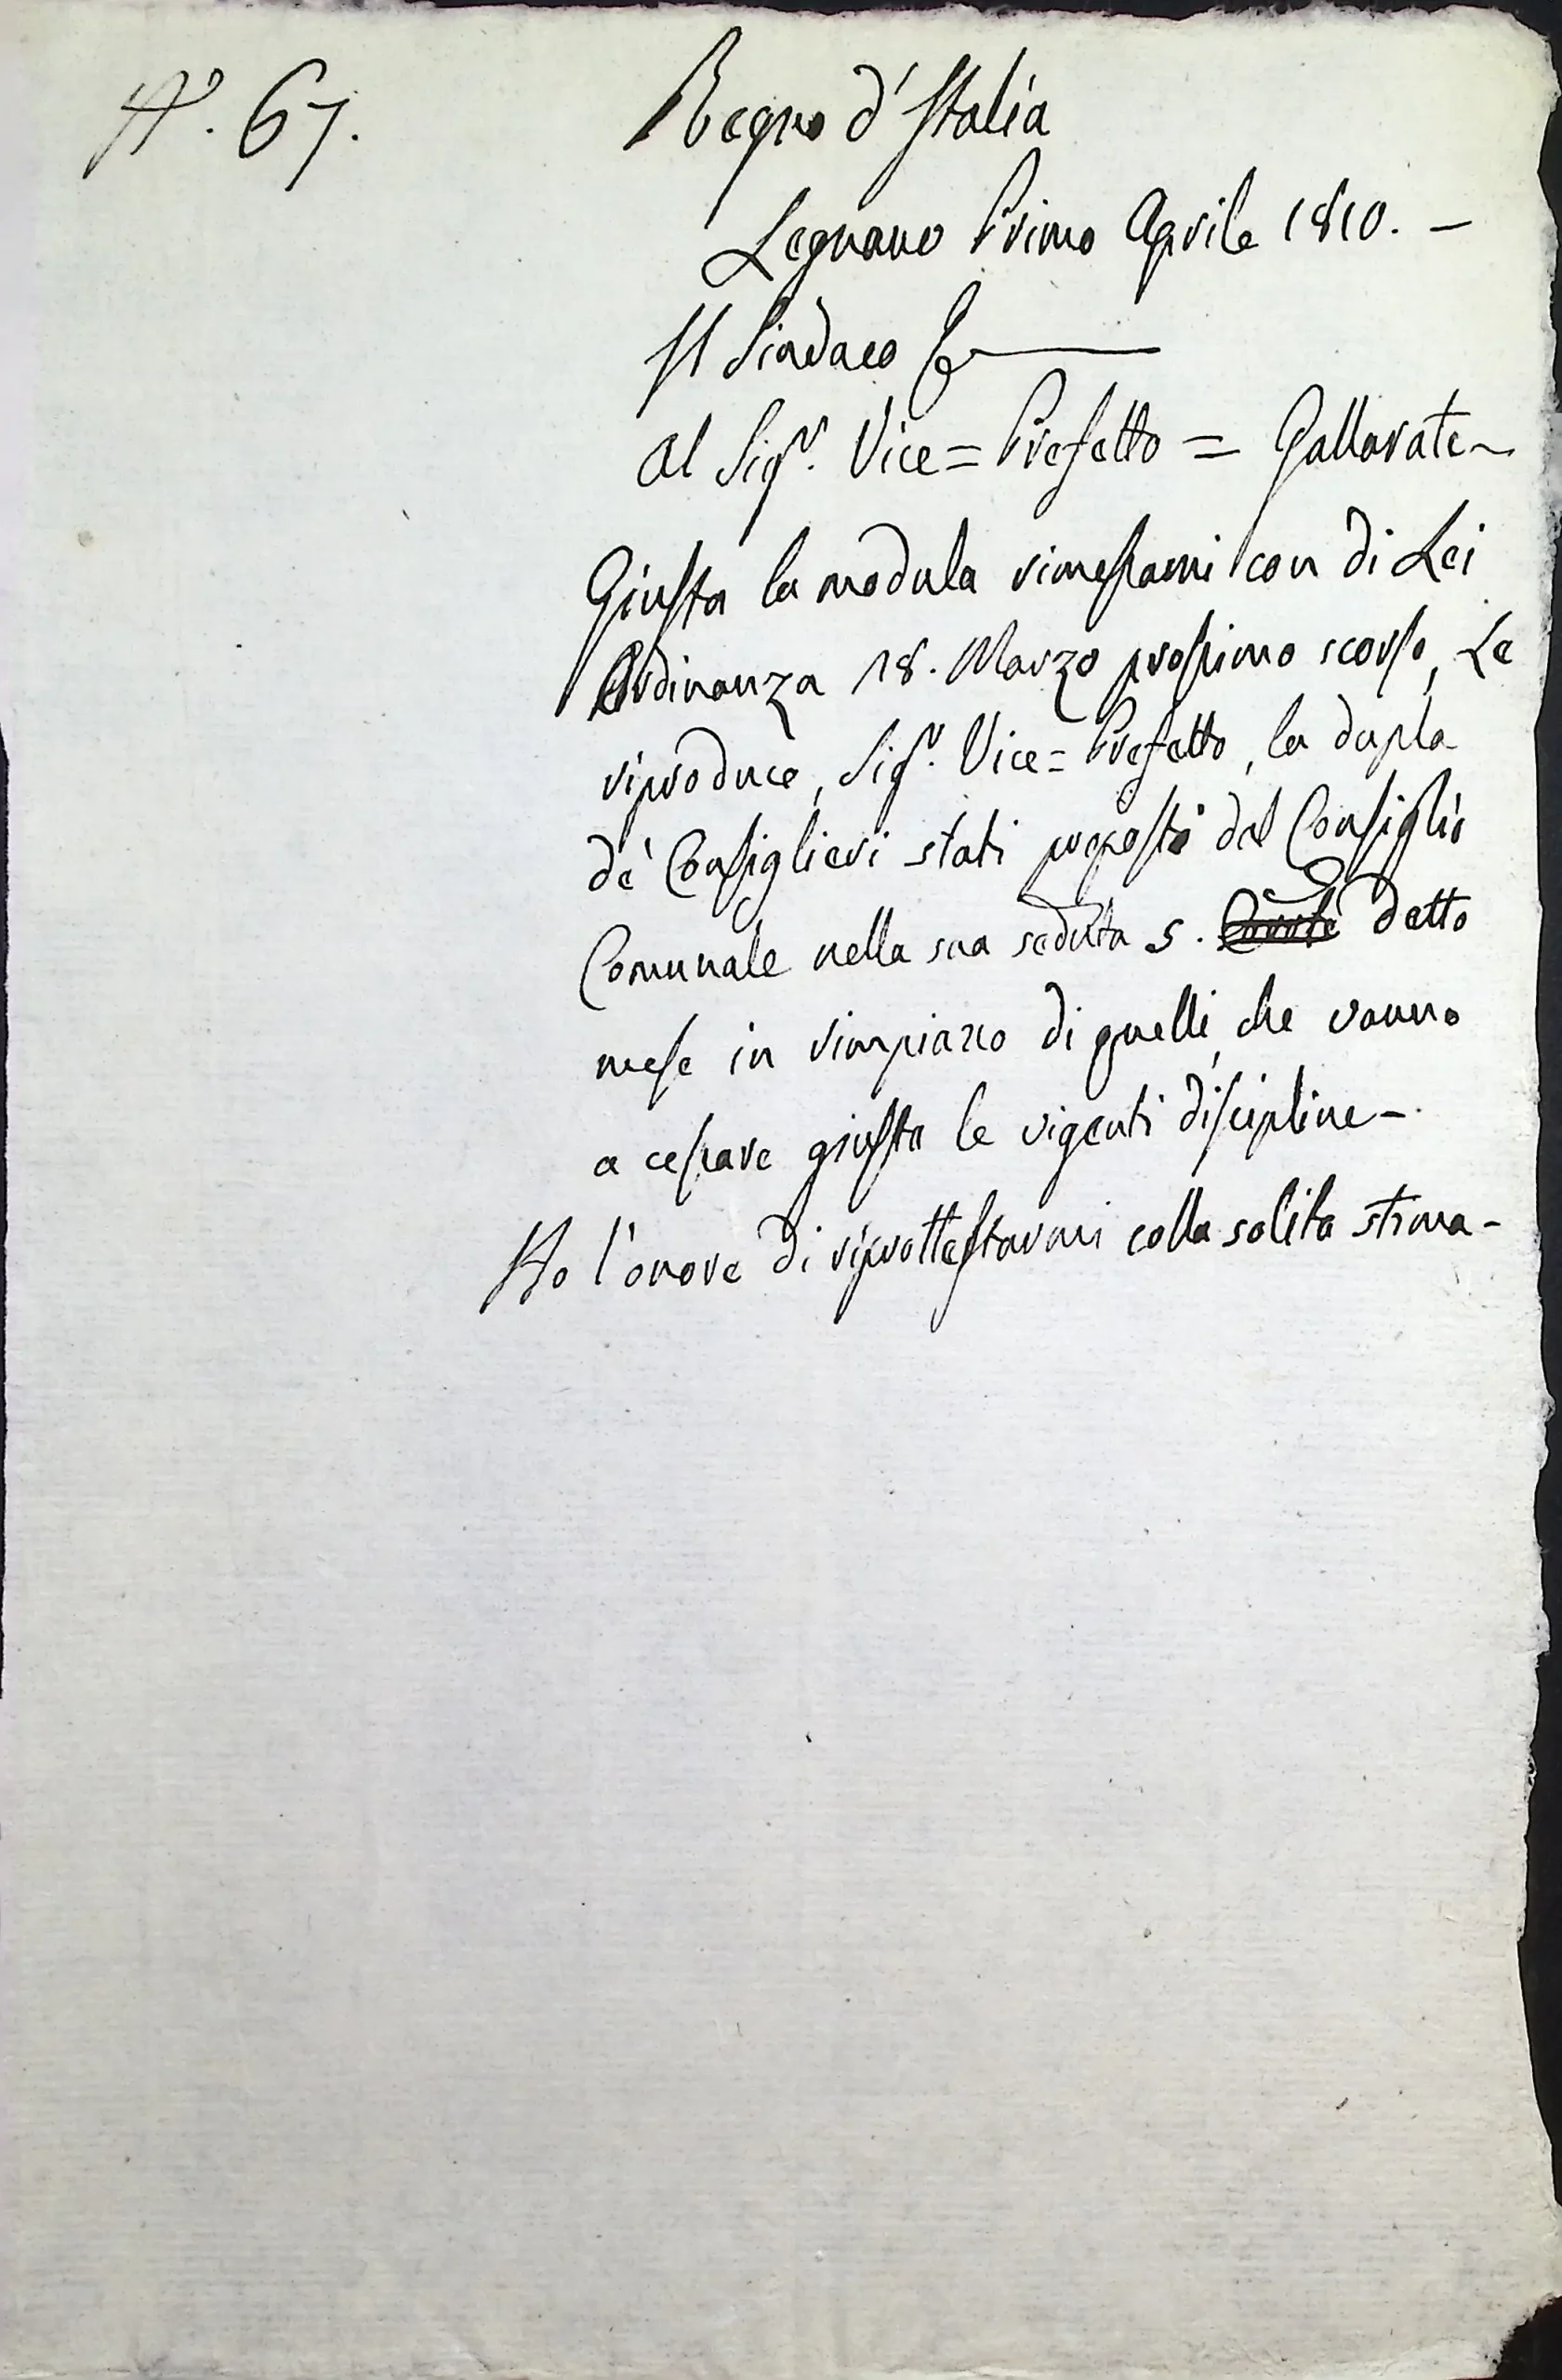 N°. 67.
Regno d'Italia
Legnano Primo Aprile 1810. -
Il Sindaco
Al Sigr. Vice= Prefetto = Gallarate
Giusta la modula rimessami con di Lei
Ordinanza 18. Marzo prossimo scorso, Le
riproduce, Sigr. Vice= Prefetto, la dupla
de' Consiglieri stati proposti dal Consiglio
Comunale nella sua seduta 5. detto
mese in rimpiazzo di quelli, che vanno
a cessare giusta le vigenti discipline -
Ho l'onore di riprottestarmi colla solita stima -